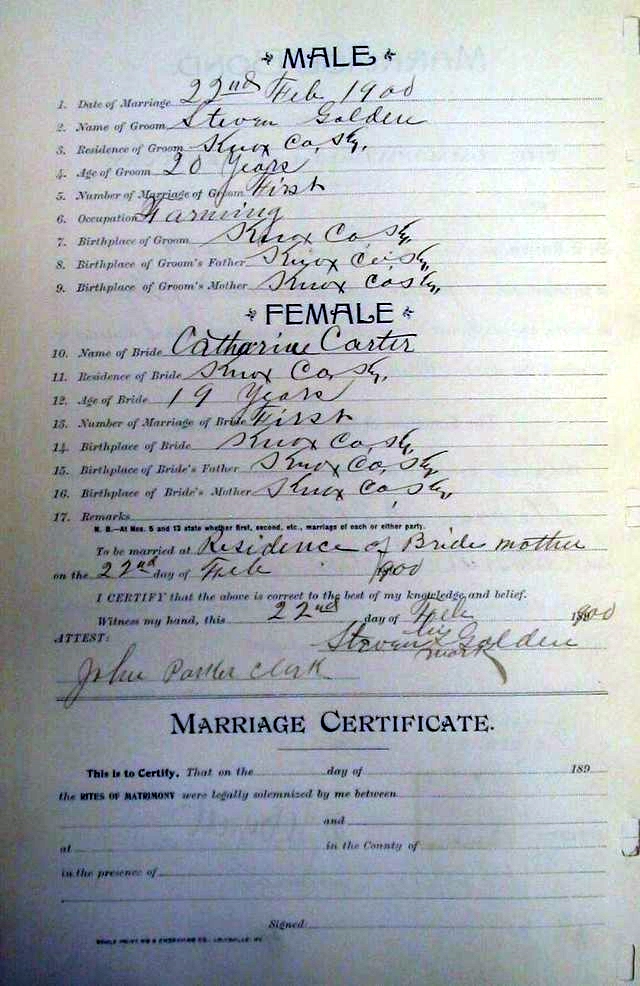 MALE
1. Date of Marriage 22nd Feb 1900
2. Name of Groom Steven Golden
3. Residence of Groom Knox Co, Ky.
4. Age of Groom 20 Years
5. Number of Marriage of Groom First
6. Occupation Farming
7. Birthplace of Groom Knox Co Ky.
8. Birthplace of Groom's Father Knox Co, Ky.
9. Birthplace of Groom's Mother Knox Co, Ky.
FEMALE
10. Name of Bride Catharine Carter
11. Residence of Bride Knox Co, Ky.
12. Age of Bride 19 Years
13. Number of Marriage of Bride First
14. Birthplace of Bride Knox Co, Ky.
15. Birthplace of Bride's Father Knox Co, Ky
16. Birthplace of Bride's Mother Knox Co, Ky.
17. Remarks
N. B.—At Nos. 5 and 13 state whether first, second, etc., marriage of each or either party.
To be married at Residence of Bride mother
on the 22nd day of Feb 1900
I CERTIFY that the above is correct to the best of my knowledge and belief.
Witness my hand, this 22nd day of Feb 1900
ATTEST: Steven his x mark Golden
John Parker Clerk
MARRIAGE CERTIFICATE.
This is to Certify, That on the day of 189
the RITES OF MATRIMONY were legally solemnized by me between
and
at in the County of
in the presence of
Signed: